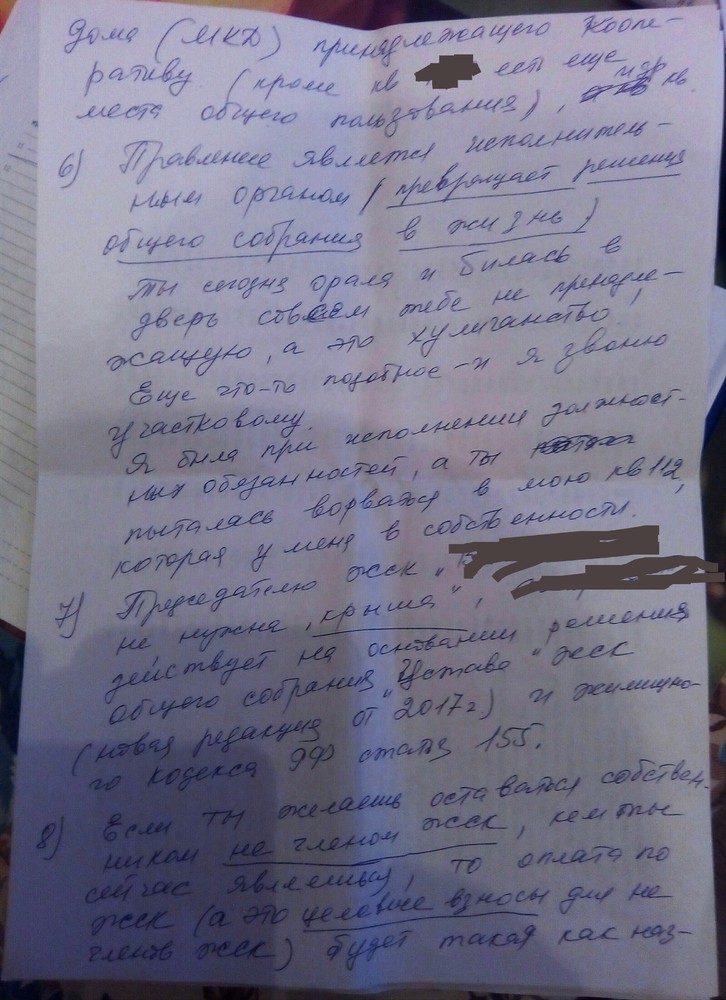 дома (МКД) принадлежащего Коопе-
ративу (кроме кв есть еще
места общего пользования), и др кв.
6) Правление является исполнитель-
ным органом (превращает решения
общего собрания в жизнь)
Ты сегодня орала и билась в
дверь совсем тебе не принадле-
жащую, а это хулиганство,
Еще что-то подобное - и я звоню
участковому.
Я была при исполнении должност-
ных обязанностей, а ты
пыталась ворваться в мою кв 112,
которая у меня в собственности.
7) Председателю жск „
не нужна „крыша",
действует на основании решения
общего собрания „Устава" жск
(новая редакция от 2017г) и жилищно-
го кодекса РФ статья 155.
8) Если ты желаешь остаться собствен-
ником не членом жск, кем ты
сейчас являешься, то оплата по
жск (а это целевые взносы для не
членов жск) будет такая как наз-